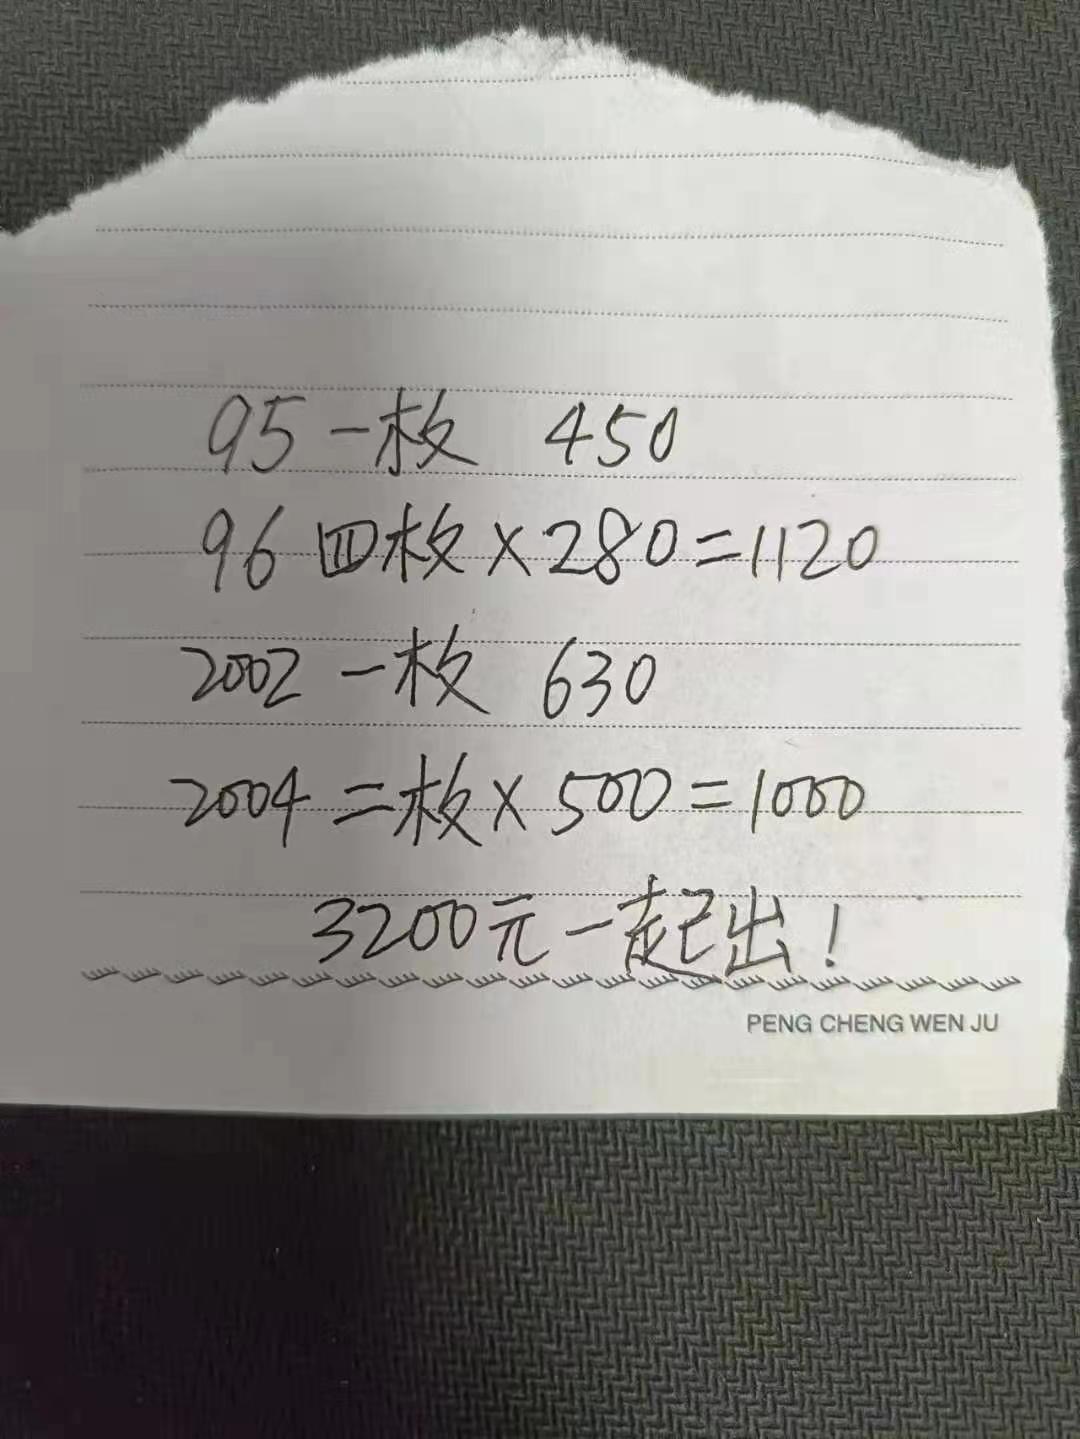 95一枚 450
96四枚×280=1120
2002一枚 630
2004二枚×500=1000
3200元一起出！
PENG CHENG WEN JU